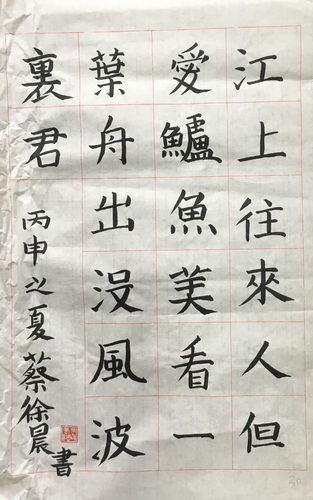 江上往來人但
愛鱸魚美看一
葉舟出没風波
裏君
丙申之夏蔡徐晨書